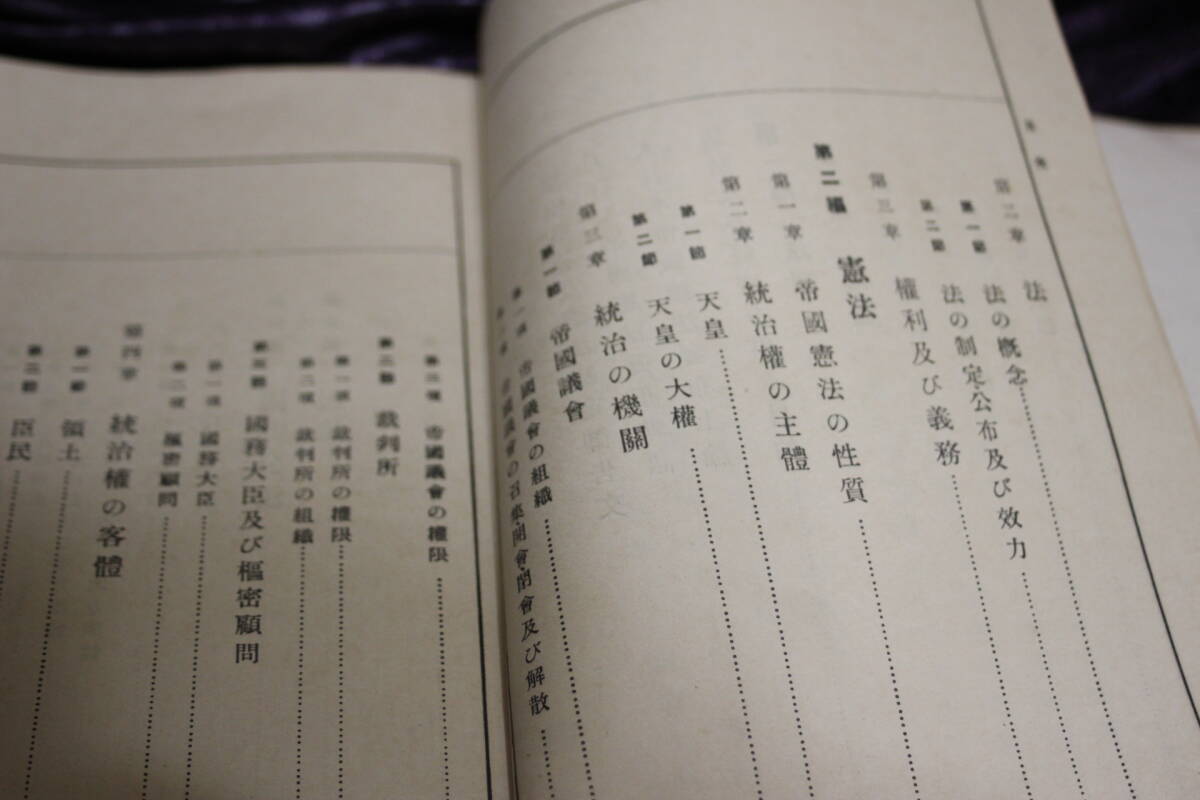 第二章 法
第一節 法の概念
第二節 法の制定・公布及び效力
第三章 權利及び義務
第二編 憲法
第一章 帝國憲法の性質
第二章 統治權の主體
第一節 天皇
第二節 天皇の大權
第三章 統治の機關
第一節 帝國議會
第一項 帝國議會の組織
第二項 帝國議會の召集・開會・閉會及び解散
第三項 帝國議會の權限
第二節 裁判所
第一項 裁判所の權限
第二項 裁判所の組織
第三節 國務大臣及び樞密顧問
第一項 國務大臣
第二項 樞密顧問
第四章 統治權の客體
第一節 領土
第二節 臣民